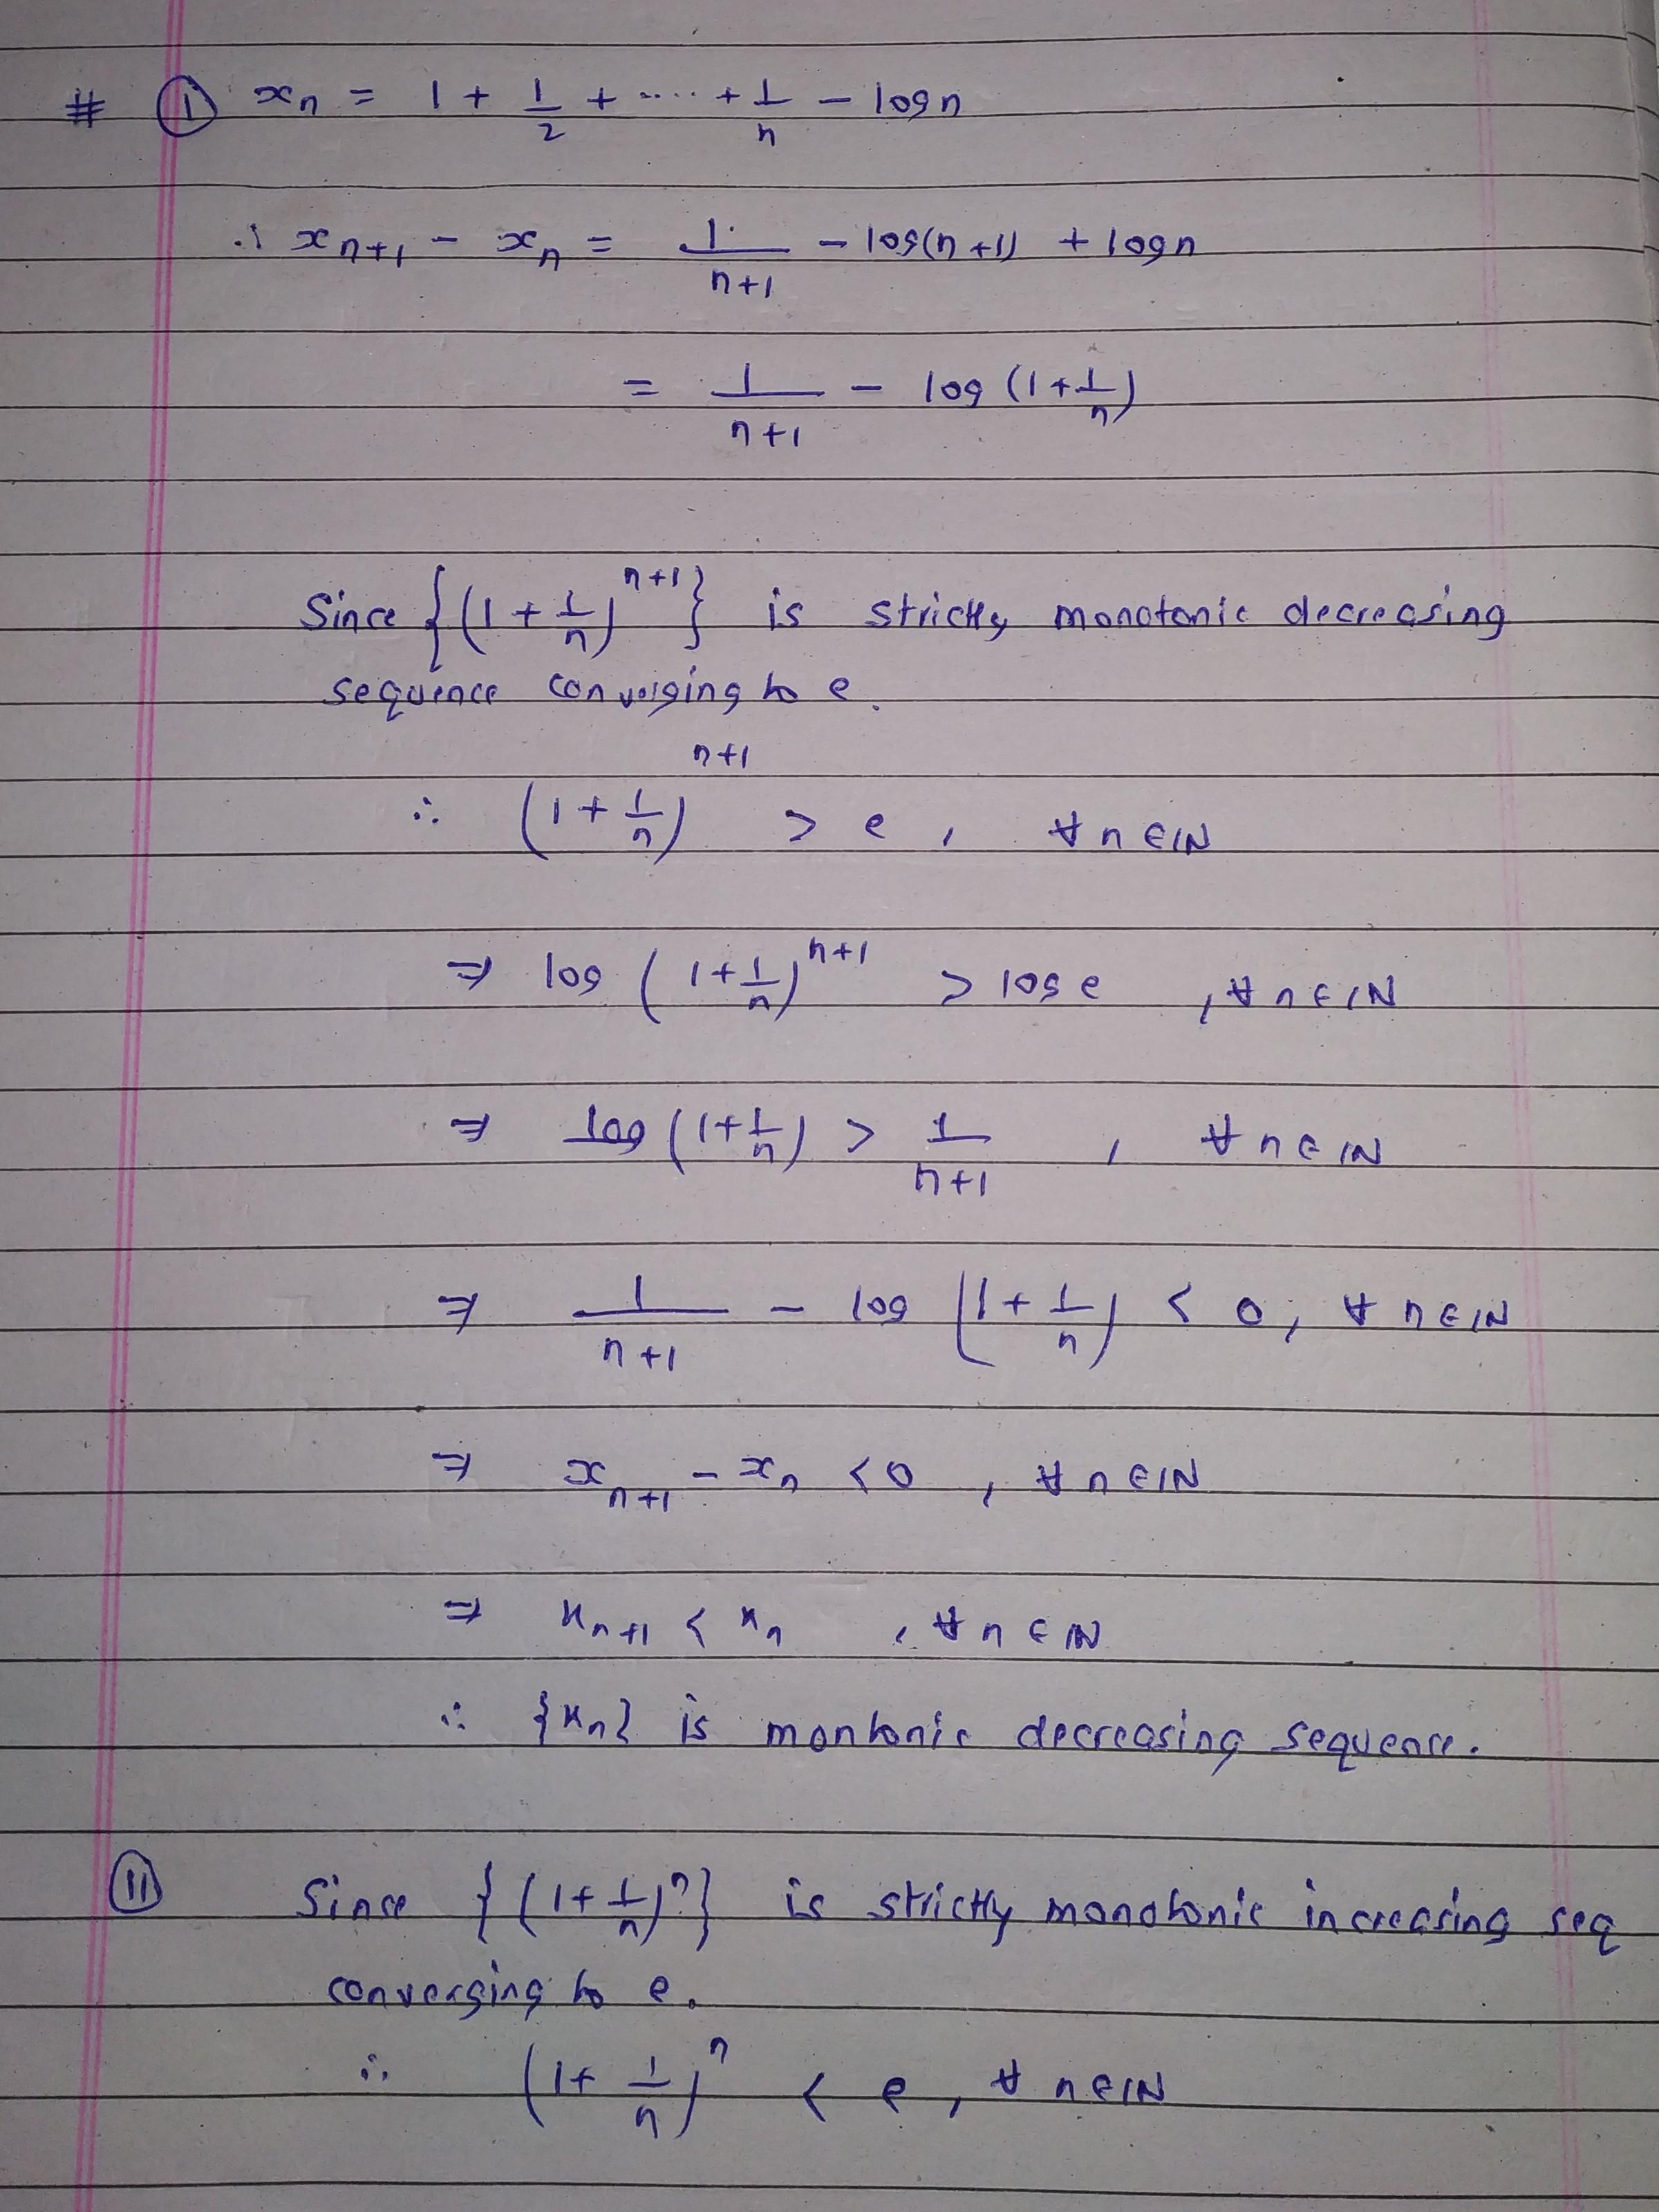 # ① xₙ = 1 + 1/2 + ..... + 1/n - log n
∴ xₙ₊₁ - xₙ = 1/(n+1) - log(n+1) + log n
= 1/(n+1) - log (1 + 1/n)
Since {(1 + 1/n)ⁿ⁺¹} is strictly monotonic decreasing
sequence converging to e.
∴ (1 + 1/n)ⁿ⁺¹ > e , ∀ n ∈ ℕ
⇒ log (1 + 1/n)ⁿ⁺¹ > log e , ∀ n ∈ ℕ
⇒ log (1 + 1/n) > 1/(n+1) , ∀ n ∈ ℕ
⇒ 1/(n+1) - log (1 + 1/n) < 0, ∀ n ∈ ℕ
⇒ xₙ₊₁ - xₙ < 0 , ∀ n ∈ ℕ
⇒ xₙ₊₁ < xₙ , ∀ n ∈ ℕ
∴ {xₙ} is montonic decreasing sequence.
⑪ Since {(1 + 1/n)ⁿ} is strictly monotonic increasing seq
converging to e.
∴ (1 + 1/n)ⁿ < e, ∀ n ∈ ℕ